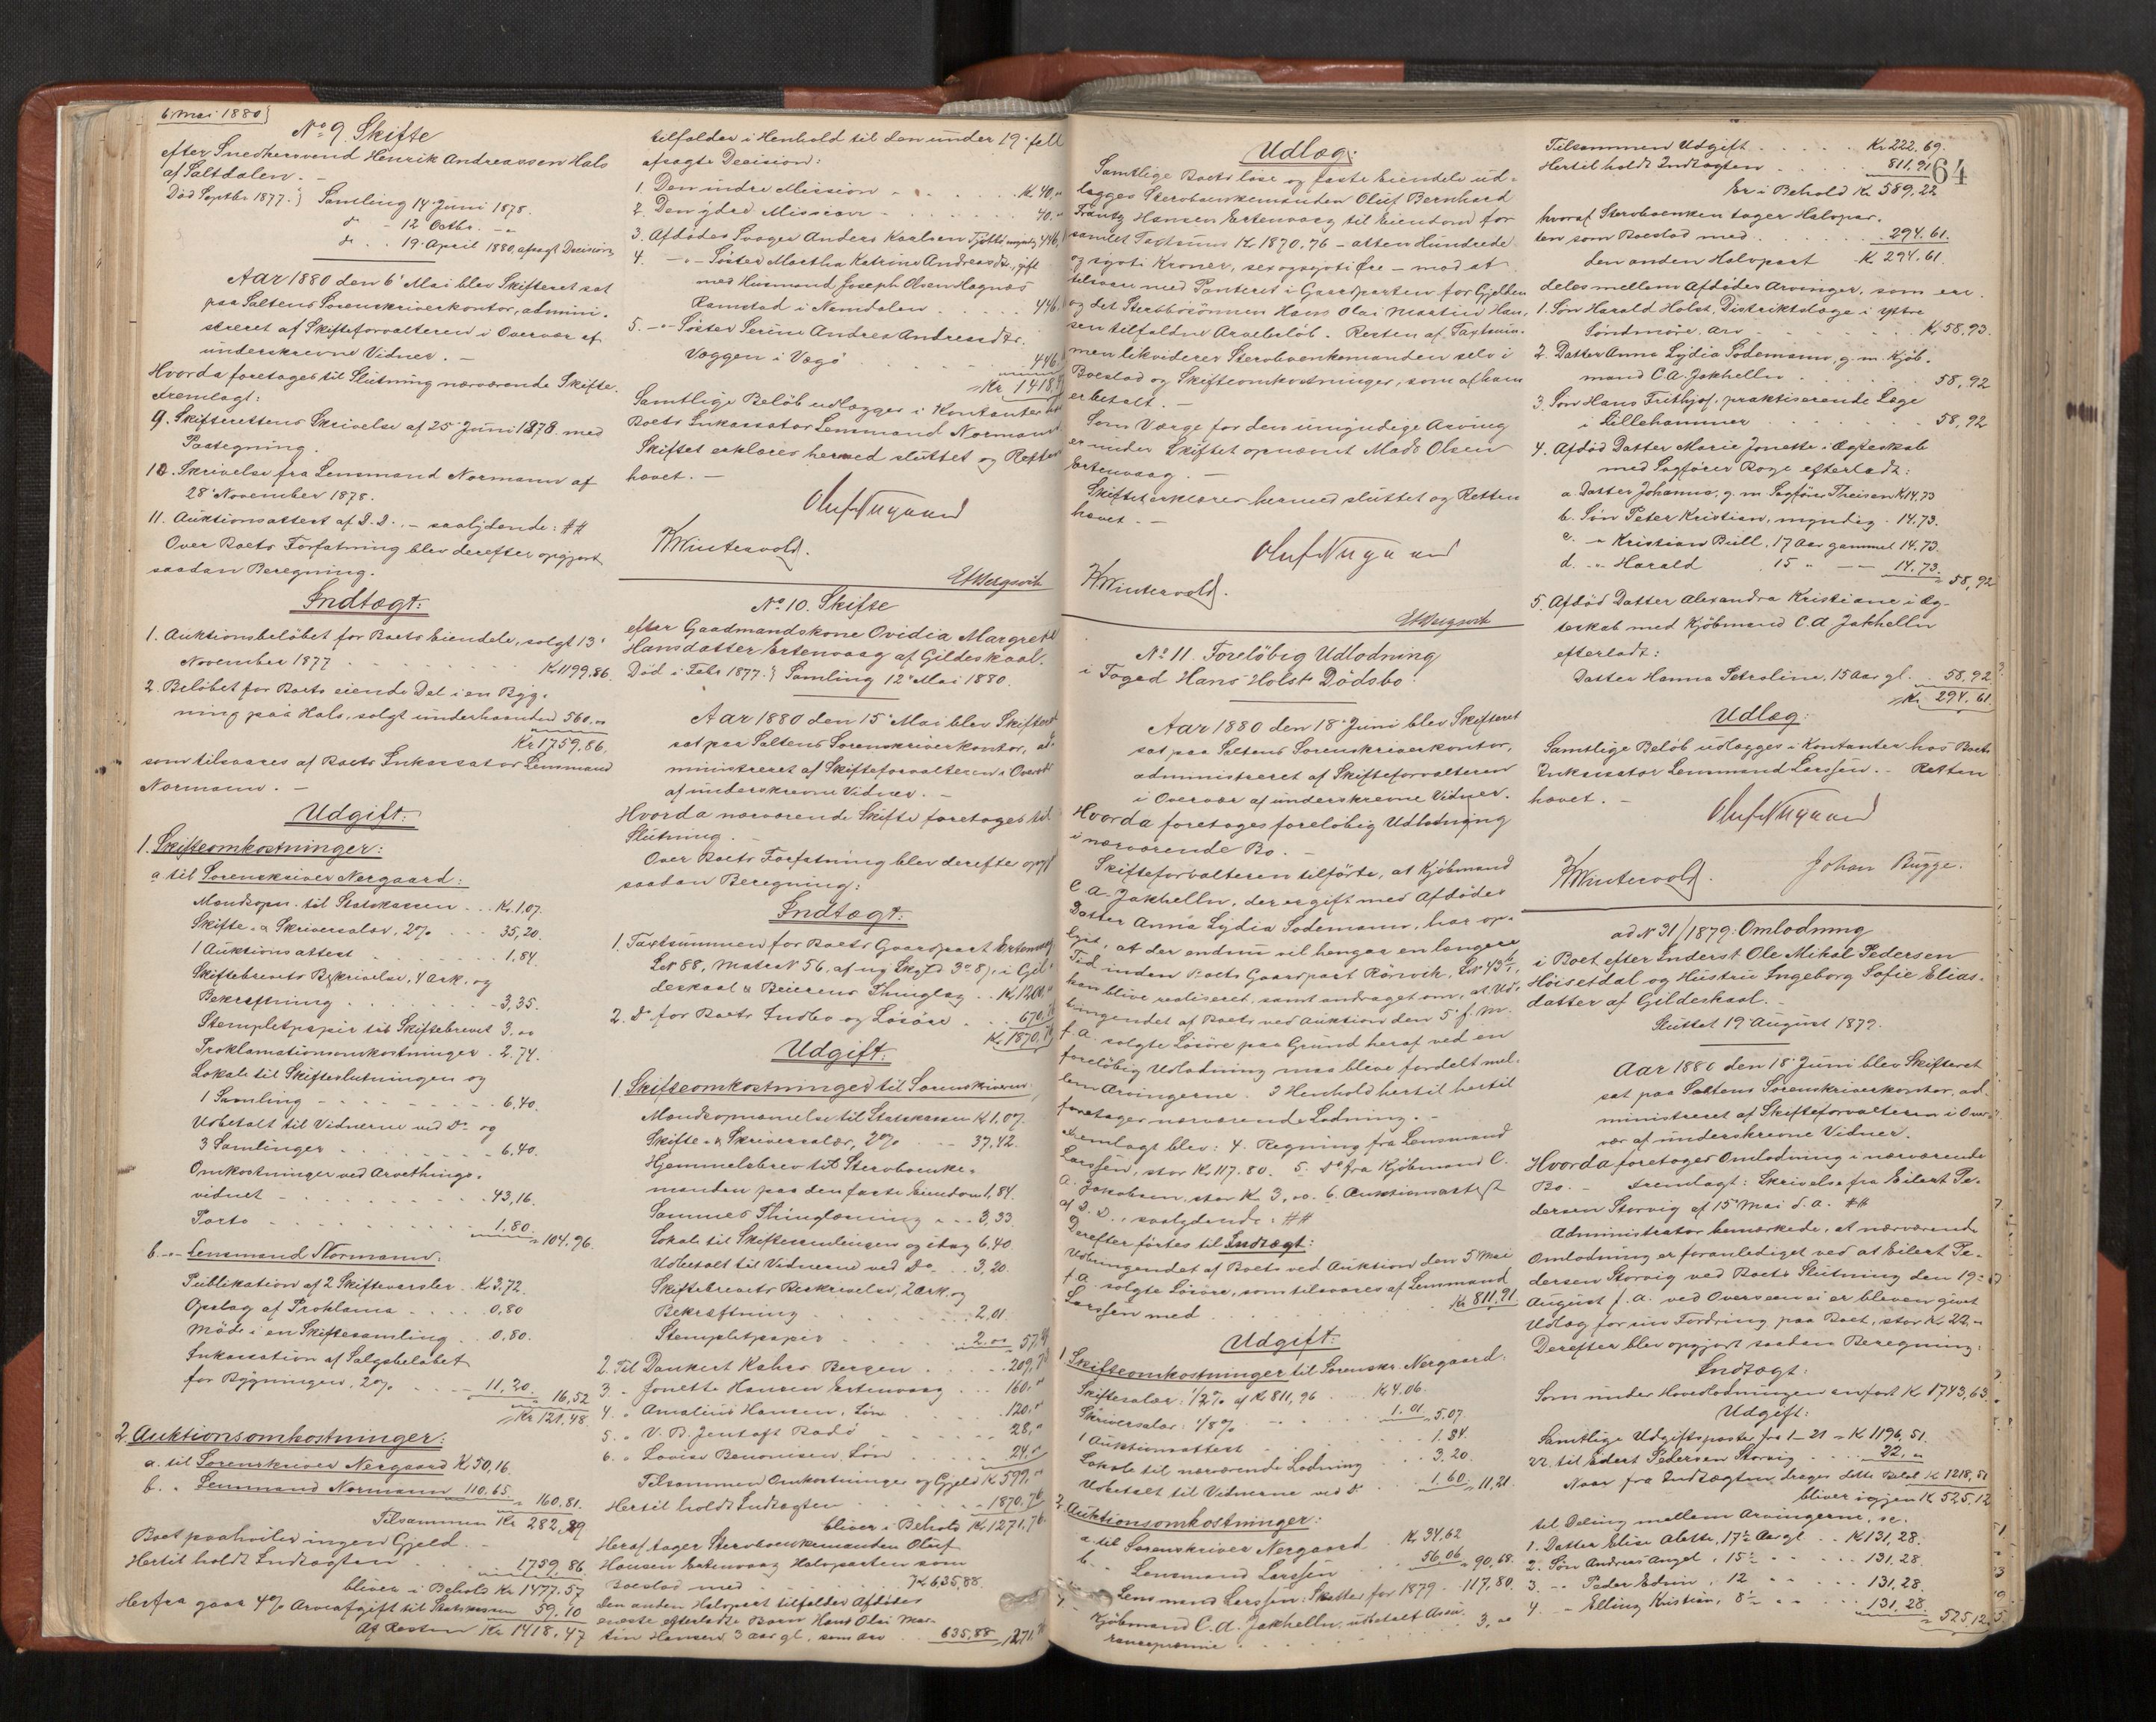 6 Mai 1880
No 9. Skifte
efter Snedkersvend Henrik Andreassen Hals
af Saltdalen. -
Død Septbr 1877. } Samling 14 Juni 1878.
do - 12 Octbr. -"-
do . . 19 April 1880, afsagt Decision
Aar 1880 den 6' Mai blev Skifteret sat
paa Saltens Sorenskriverkontor, admini-
streret af Skifteforvalteren i Overvær af
underskrevne Vidner. -
Hvorda foretages til Slutning nærværende Skifte.
Fremlagt:
9. Skifterettens Skrivelse af 25 Juni 1878 med
Paategning.
10. Skrivelse fra Lensmand Normann af
28' November 1878.
11. Auktionsattest af D. D. - saalydende: ##
Over Boets Forfatning blev derefter opgjort
saadan Beregning.
Indtægt:
1. Auktionsbeløbet for Boets Eiendele, solgt 13'
November 1877 . . . Kr 1199,86.
2. Beløbet for Boets eiende Del i en Byg-
ning paa Hals, solgt underhaanden 560,"
Kr 1759,86.
som tilsvares af Boets Inkassator Lensmand
Normann. -
Udgift:
1. Skifteomkostninger:
a til Sorenskriver Nergaard:
Mandsopn. til Statskassen . . Kr. 1,07.
Skifte- & Skriversalær, 2% . . . 35,20.
1 Auktionsattest . . . 1,84.
Skiftebrevets Beskrivelse, 4 Ark, og
Bekræftning . . . 3,35.
Stempletpapir til Skiftebrevet 3.00
Proklamationsomkostninger . 2.74.
Lokale til Skifteslutningen og
1 Samling . . . 6,40.
Udbetalt til Vidnerne ved Do og
3 Samlinger . . . 6,40.
Omkostninger ved Arvethings-
vidnet . . . 43,16.
Porto . . . 1.80. " 104.96.
b. -"- Lensmand Normann:
Publikation af 2 Skiftevarsler . . Kr 3,72.
Opslag af Proklama . . . . 0,80
Møde i en Skiftesamling . . 0,80.
Inkassation af Salgsbeløbet
for Bygningen, 2% . . . 11,20. " 16,52
Kr 121,48
2. Auktionsomkostninger:
a. til Sorenskriver Nergaard K 50,16.
b. " Lensmand Normann 110,65. " 160,81.
Tilsammen Kr 282,29
Boet paahviler ingen Gjeld. -
Hertil holdt Indtægten . . . 1759,86.
bliver i Behold Kr 1477.57
Herfra gaar 4% Arveafgift til Statskassen 59.10
Af Resten Kr 1418,47
tilfalder i Henhold til den under 19. April
afsagte Decision:
1. Den indre Mission . . . Kr 40,"
2. Den ydre Mission . . . 40."
3. Afdødes Svoger Anders Karlsen Tjøttø 446,
4. -"- Søster Martha Katrine Andreasdtr, gift
med Husmand Joseph Olsen Hagnæs
Ramstad i Namdalen . . . 446.
5. -"- Søster Serine Andrea Andreasdtr.
Væggen i Vegø . . . 446.
Kr. 1418,
Samtlige Beløb udlægges i Kontanter hos
Boets Inkassator Lensmand Normann.
Skiftet erklæres hermed sluttet og Retten
hævet. -
Oluf Nergaard
Wintervold.
E Bergsvik
No 10. Skifte
efter Gaardmandskone Ovidia Margrete
Hansdatter Ertenvaag af Gildeskaal.
Død i Febr 1877. } Samling 12' Mai 1880.
Aar 1880 den 15' Mai blev Skifteret
sat paa Saltens Sorenskriverkontor, ad-
ministreret af Skifteforvalteren i Overvær
af underskrevne Vidner. -
Hvorda nærværende Skifte foretages til
Slutning. -
Over Boets Forfatning blev derefter opgjort
saadan Beregning:
Indtægt:
1. Taxtsummen for Boets Gaardpart Ertenvaag
Lbt 88, Matr N 56, af ny Skyld 3 8, i Gil-
deskaal & Beierens Thinglag . . Kr 1200,"
2. Do for Boets Indbo og Løsøre . . 670,
Kr. 1870.
Udgift:
1. Skifteomkostninger til Sorenskriveren:
Mandsopnævnelse til Statskassen K 1.07.
Skifte- & Skriversalær, 2% . . . 37,42.
Hjemmelsbrev til Stervboenke-
manden paa den faste Eiendom 1,84.
Sammes Thinglæsning . . . 3,33.
Lokale til Skiftesamlingen og idag 6,40.
Udbetalt til Vidnerne ved Do . . 3,20.
Skiftebrevets Beskrivelse, 2 Ark, og
Bekræftning . . . 2,01.
Stempletpapir . . . 2.00 57,
2. Til Dankert Krohn Bergen . . . 209,
3. " Jonette Hansen Ertenvaag . . . 160,"
4. " Amalius Hansen, Løn . . . 120,"
5. " V. B. Jentoft Rødø . . . 28,"
6. " Lovise Benonisen Løn . . . 24,"
Tilsammen Omkostninger og Gjeld K 599,"
Hertil holdt Indtægten . . . 1870,76.
bliver i Behold Kr 1271,76.
Heraf tager Stervboenkemanden Oluf
Hansen Ertenvaag Halvparten som
Boeslod med . . . Kr 635,88.
Den anden Halvpart tilfalder Afdødes
eneste efterladte Barn Hans Olai Mar-
tin Hansen, 3 Aar gl, som Arv . . 635,88 " 1271.
64
Udlæg:
Samtlige Boets løse og faste Eiendele ud-
lægges Stervboenkemanden Oluf Bernhard
Frantz Hansen Ertenvaag til Eiendom for
samlet Taxtsum Kr 1870,76 - atten Hundrede
og sytti Kroner, sex og sytti Øre - mod at
tilsvare med Panteret i Gaardparten for Gjelden
og det Stervbosønnen Hans Olai Martin Han-
sen tilfaldne Arvebeløb. Resten af Taxtsum-
men likviderer Stervboenkemanden selv i
Boeslod og Skifteomkostninger, som af ham
er betalt. -
Som Værge for den umyndige Arving
er under Skiftet opnævnt Mads Olsen
Ertenvaag. -
Skiftet erklæres hermed sluttet og Retten
hævet. -
Oluf Nergaard
Wintervold.
E Bergsvik
No 11. Foreløbig Udlodning
i Foged Hans Holst's Dødsbo.
Aar 1880 den 18' Juni blev Skifteret
sat paa Saltens Sorenskriverkontor,
administreret af Skifteforvalteren
i Overvær af underskrevne Vidner.
Hvorda foretages foreløbig Udlodning
i nærværende Bo. -
Skifteforvalteren tilførte, at Kjøbmand
C. A. Jakhelln, der er gift med Afdødes
Datter Anna Lydia Sodemann, har op-
lyst, at der endnu vil hengaa en længere
Tid inden Boets Gaardpart Rørvik, Lbt 43,
kan blive realiseret, samt andraget om, at Ud-
bringendet af Boets ved Auktion den 5' f. M.
f. A. solgte Løsøre paa Grund heraf ved en
foreløbig Udlodning maa blive fordelt mel-
lem Arvingerne. I Henhold hertil hertil
foretages nærværende Lodning. -
Fremlagt blev: 4. Regning fra Lensmand
Larssen, stor Kr 117.80. 5. Do fra Kjøbmand C.
A. Jakobsen, stor Kr. 3,00. 6. Auktionsattest
af D. D., saalydende: ##
Derefter førtes til Indtægt:
Udbringendet af Boets ved Auktion den 5 Mai
f. A. solgte Løsøre, som tilsvares af Lensmand
Larssen med . . . Kr 811.91.
Udgift:
1. Skifteomkostninger til Sorenskr. Nergaard:
Skiftesalær: 1/2 % af Kr 811,96 . . K 4.06.
Skriversalær: 1/8 % . . . 1.01 " 5.07.
1 Auktionsattest . . . 1.84.
Lokale til nærværende Lodning . . . 3.20
Udbetalt til Vidnerne ved Do . . . 1.60 " 11,21.
2. Auktionsomkostninger:
a. til Sorenskriver Nergaard . . K. 34,62
b. " Lensmand Larssen . . . 56,06 " 90,68.
Lensmand Larssen: Skatter for 1879 . . 117,80.
Kjøbmand C. A. Jakhelln, udbetalt Assu-
rancepræmie . . . 3,"
Tilsammen Udgift . . . Kr 222,69.
Hertil holdt Indtægten . . . 811,91
Er i Behold Kr 589,22
hvoraf Stervboenken tager Halvpar-
ten som Boeslod med . . . 294.61.
den anden Halvpart Kr 294.61.
deles mellem Afdødes Arvinger, som ere
1. Søn Harald Holst, Distriktslæge i ytre
Søndmøre, Arv . . . Kr 58,93.
2. Datter Anna Lydia Sodemann, g. m. Kjøb-
mand C. A. Jakhelln . . . 58,92
3. Søn Hans Frithjof, praktiserende Læge
i Lillehammer . . . 58,92
4. Afdød Datter Marie Jonette i Ægteskab
med Sagfører Roge efterladt:
a. Datter Johanna, g. m. Sagfører Theisen K 14.73
b. Søn Peter Kristian, myndig . 14.73.
c. " Kristian Bull, 17 Aar gammel 14.73.
d. " Harald 15 " -- 14.73. " 58,92
5. Afdød Datter Alexandra Kristiane i Æg-
teskab med Kjøbmand C. A. Jakhelln
efterladt:
Datter Hanna Petroline, 15 Aar gl. . 58,92
Kr. 294.61.
Udlæg:
Samtlige Beløb udlægges i Kontanter hos Boets
Inkassator Lensmand Larssen. - Retten
hævet. -
Oluf Nergaard
Wintervold.
Johan Bugge.
ad N 31/1879. Omlodning
i Boet efter Inderst Ole Mikal Pedersen
Høisetdal og Hustru Ingeborg Sofie Elias-
datter af Gildeskaal. -
Sluttet 19' August 1879.
Aar 1880 den 18' Juni blev Skifteret
sat paa Saltens Sorenskriverkontor, ad-
ministreret af Skifteforvalteren i Over-
vær af underskrevne Vidner.
Hvorda foretages Omlodning i nærværende
Bo. - Fremlagt: Skrivelse fra Eilert Pe-
dersen Storvig af 15' Mai d. A. ##
Administrator bemærkede, at nærværende
Omlodning er foranlediget ved at Eilert Pe-
dersen Storvig ved Boets Slutning den 19'
August f. A. ved Overseen ei er bleven givet
Udlæg for sin Fordring paa Boet, stor Kr. 22,"
Derefter blev opgjort saadan Beregning:
Indtægt:
Som under Hovedlodningen anført Kr 1743,63.
Udgift:
Samtlige Udgiftsposter fra 1-21 = Kr 1196,51.
22. til Eilert Pedersen Storvig . . . 22,"
Naar fra Indtægten drages dette Beløb Kr 1218,51
bliver igjen Kr 525,12
til Deling mellem Arvingerne, se.
1. Datter Elise Alette, 17 Aar gl . . K 131,28.
2. Søn Andreas Angel, 15 " . . . 131,28.
3. -"- Peder Edvin, 12 " . . . 131,28.
4. -"- Elling Kristian, 8 " . . . 131,28.
" 525,12